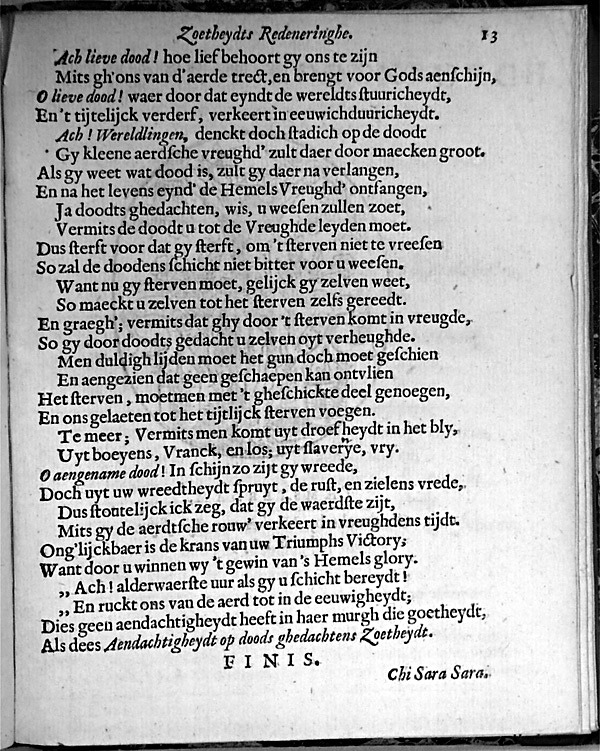 Zoetheydts Redeneringhe. 13
Ach lieve dood! hoe lief behoort gy ons te zijn
Mits gh'ons van d'aerde treckt, en brengt voor Gods aenschijn,
O lieve dood! waer door dat eyndt de wereldts stuuricheydt,
En 't tijtelijck verderf, verkeert in eeuwichduuricheydt.
Ach! Wereldlingen, denckt doch stadich op de doodt
Gy kleene aerdsche vreughd' zult daer door maecken groot.
Als gy weet wat dood is, zult gy daer na verlangen,
En na het levens eynd' de Hemels Vreughd' ontfangen,
Ja doodts ghedachten, wis, u weesen zullen zoet,
Vermits de doodt u tot de Vreughde leyden moet.
Dus sterft voor dat gy sterft, om 't sterven niet te vreesen
So zal de doodens schicht niet bitter voor u weesen.
Want nu gy sterven moet, gelijck gy zelven weet,
So maeckt u zelven tot het sterven zelfs gereedt.
En graegh'; vermits dat ghy door 't sterven komt in vreugde,
So gy door doodts gedacht u zelven oyt verheughde.
Men duldigh lijden moet het gun doch moet geschien
En aengezien dat geen geschaepen kan ontvlien
Het sterven, moetmen met 't gheschickte deel genoegen,
En ons gelaeten tot het tijtlijck sterven voegen.
Te meer; Vermits men komt uyt droefheydt in het bly,
Uyt boeyens, Vranck, en los; uyt slaverye, vry.
O aengename dood! In schijn zo zijt gy wreede,
Doch uyt uw wreedtheydt spruyt, de rust, en zielens vrede,
Dus stoutelijck ick zeg, dat gy de waerdste zijt,
Mits gy de aerdtsche rouw' verkeert in vreughdens tijdt.
Ong'lijckbaer is de krans van uw Triumphs Victory;
Want door u winnen wy 't gewin van 's Hemels glory.
„ Ach! alderwaerste uur als gy u schicht bereydt!
„ En ruckt ons van de aerd tot in de eeuwigheydt;
Dies geen aendachtigheydt heeft in haer murgh die goetheydt,
Als dees Aendachtigheydt op doods ghedachtens Zoetheydt.
FINIS.
Chi Sara Sara.